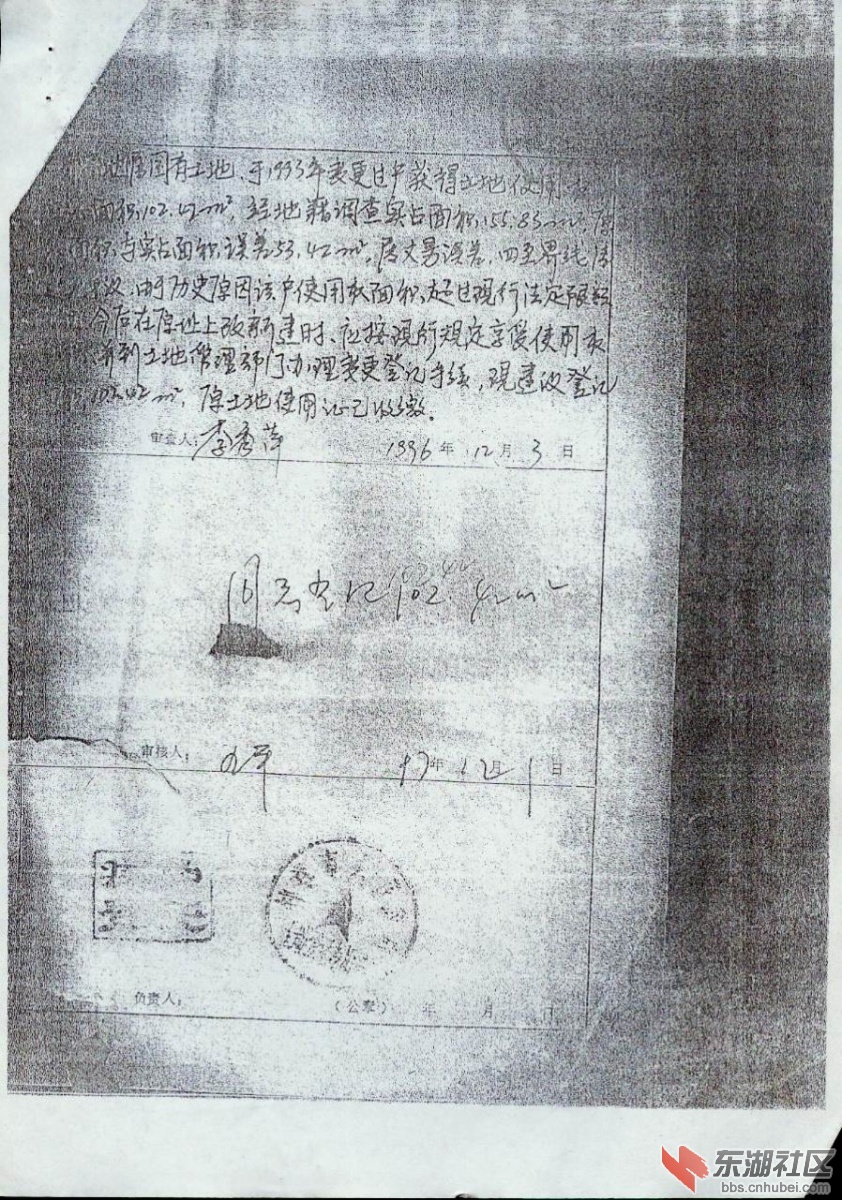 地属国有土地、于1993年变更过户获得土地使用
面积102.42m²，经地籍调查实占面积155.83m²，
面积与实占面积误差53.42m²，属丈量误差，四至界线
由于历史原因该户使用权面积超过现行法定限额
今后在原址上改新建时、应按现行规定享受使用权
并到土地管理部门办理变更登记手续，现建议登记
102.42m²，原土地使用证已收缴。
审查人：李秀萍 1996年12月3日
同意登记102.42m²
审核人： 97年12月1日
负责人： （公章） 年 月 日
东湖社区
bbs.cnhubei.com